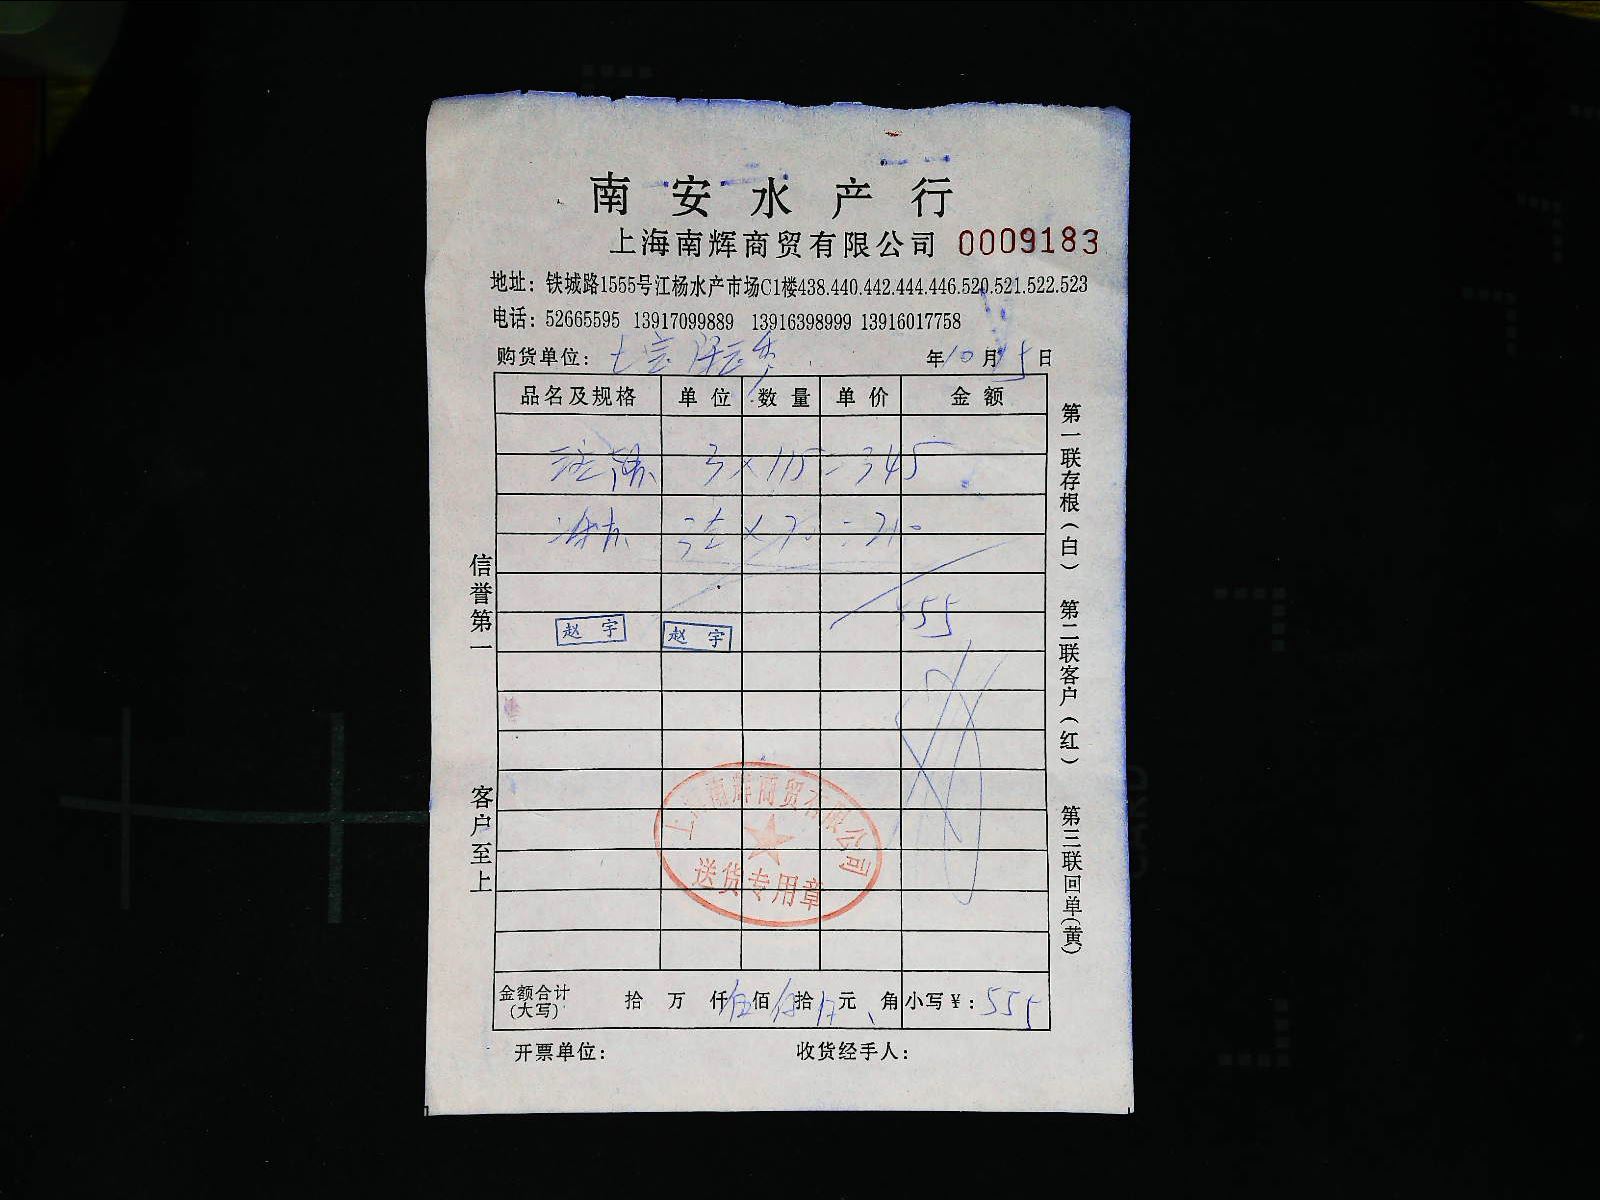 南安水产行
上海南辉商贸有限公司 0009183
地址：铁城路1555号江杨水产市场C1楼438.440.442.444.446.520.521.522.523
电话：52665595 13917099889 13916398999 13916017758
购货单位： 年10月15日
品名及规格 单位 数量 单价 金额
3×115=345
×70=210
555
赵宇 赵宇
上海南辉商贸有限公司
送货专用章
金额合计(大写) 拾 万 仟伍佰伍拾伍元 角 小写￥：555
开票单位： 收货经手人：
信誉第一 客户至上
第一联存根（白） 第二联客户（红） 第三联回单（黄）